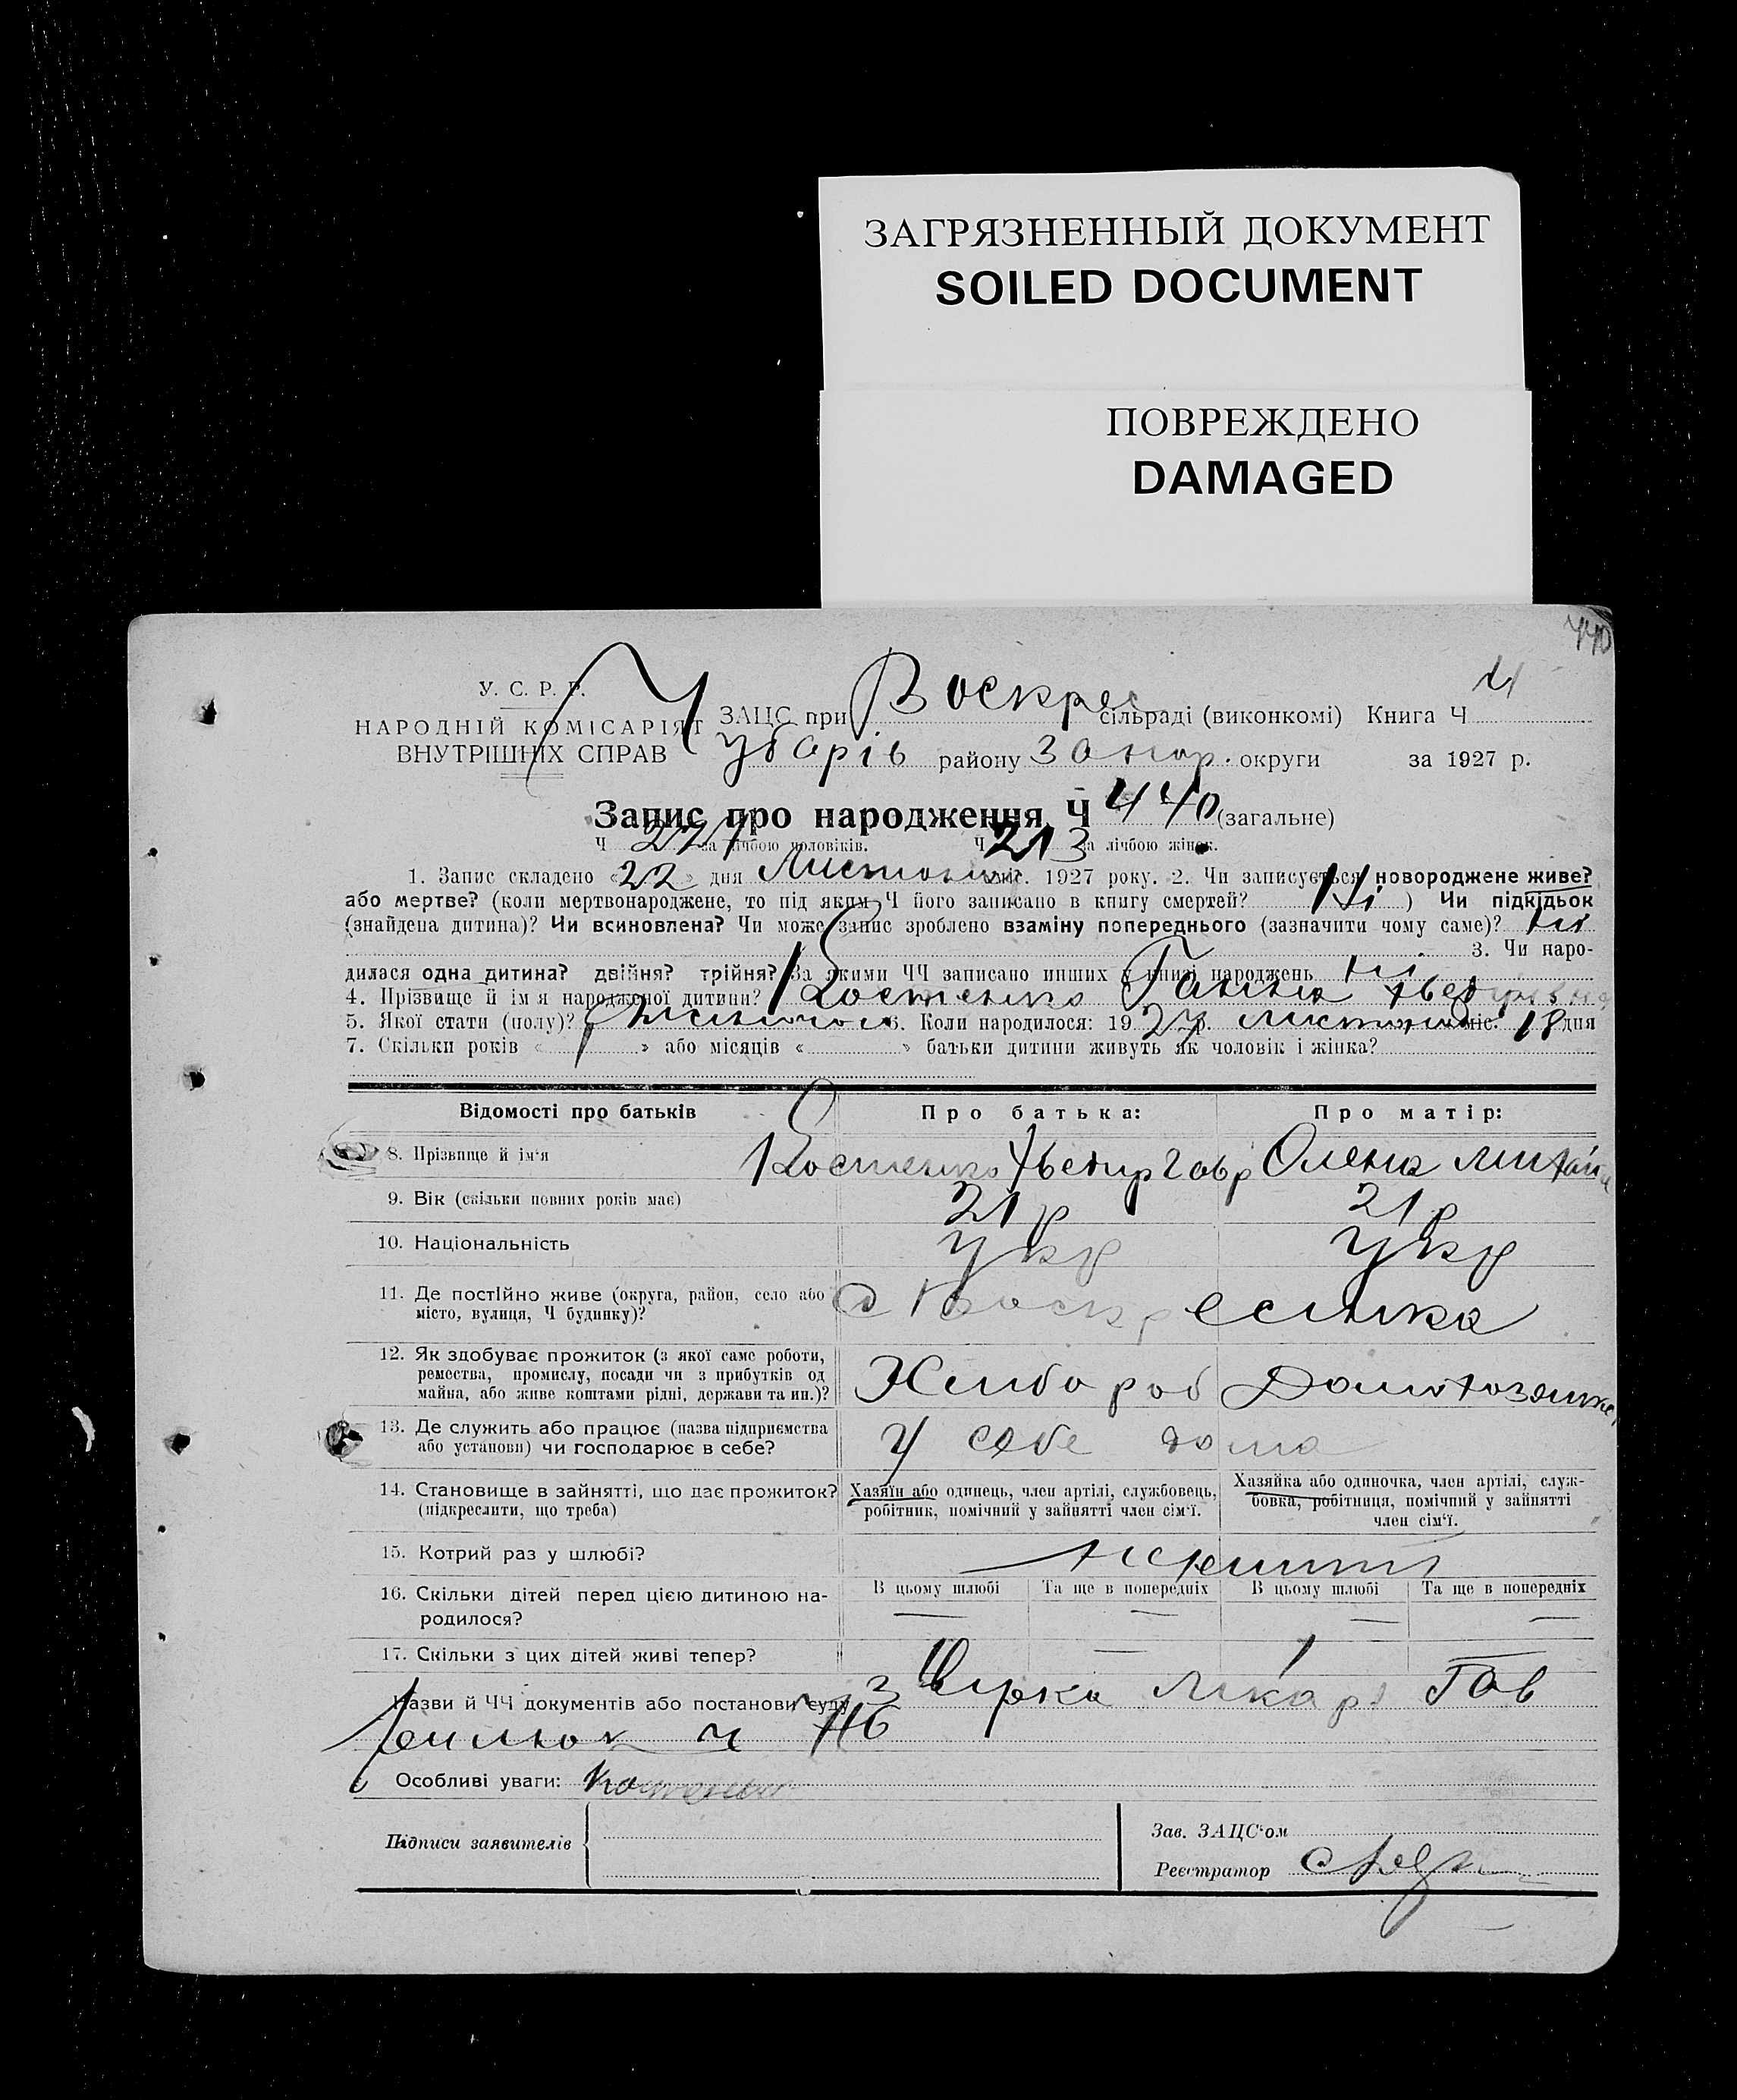 440
ЗАГРЯЗНЕННЫЙ ДОКУМЕНТ
SOILED DOCUMENT
ПОВРЕЖДЕНО
DAMAGED
У. С. Р. Р.
НАРОДНІЙ КОМІСАРІЯТ
ВНУТРІШНІХ СПРАВ
ЗАЦС при Воскрес сільраді (виконкомі) Книга Ч
Чубарів району Запор. округи за 1927 р.
Запис про народження Ч 440 (загальне)
Ч 227 за лічбою чоловіків. Ч 213 за лічбою жінок.
1. Запис складено «22» дня Листопад міс. 1927 року. 2. Чи записується новороджене живе?
або мертве? (коли мертвонароджене, то під яким Ч його записано в книгу смертей? Ні ) Чи підкідьок
(знайдена дитина)? Чи всиновлена? Чи може запис зроблено взаміну попереднього (зазначити чому саме)? Ні
3. Чи наро-
дилася одна дитина? двійня? трійня? За якими ЧЧ записано инших у книзі народжень Ні
4. Прізвище й ім'я народженої дитини? Костенко Ганна
5. Якої стати (полу)? Жіночої 6. Коли народилося: 1927 р. Листопад міс. 18 дня
7. Скільки років « » або місяців « » батьки дитини живуть як чоловік і жінка?
Відомості про батьків Про батька: Про матір:
8. Прізвище й ім'я Костенко Олена
9. Вік (скільки повних років має) 21 р 21 р
10. Національність Укр Укр
11. Де постійно живе (округа, район, село або
місто, вулиця, Ч будинку)? с Воскресенка
12. Як здобуває прожиток (з якої саме роботи,
ремества, промислу, посади чи з прибутків од
майна, або живе коштами рідні, держави та ин.)? Хлибороб
13. Де служить або працює (назва підприємства
або установи) чи господарює в себе? У себе дома
14. Становище в зайнятті, що дає прожиток?
(підкреслити, що треба)
Хазяїн або одинець, член артілі, службовець,
робітник, помічний у зайнятті член сім'ї.
Хазяйка або одиночка, член артілі, служ-
бовка, робітниця, помічний у зайнятті
член сім'ї.
15. Котрий раз у шлюбі?
16. Скільки дітей перед цією дитиною на-
родилося?
В цьому шлюбі Та ще в попередніх В цьому шлюбі Та ще в попередніх
17. Скільки з цих дітей живі тепер?
Назви й ЧЧ документів або постанови суду
Особливі уваги:
Підписи заявителів
Зав. ЗАЦС'ом
Реєстратор